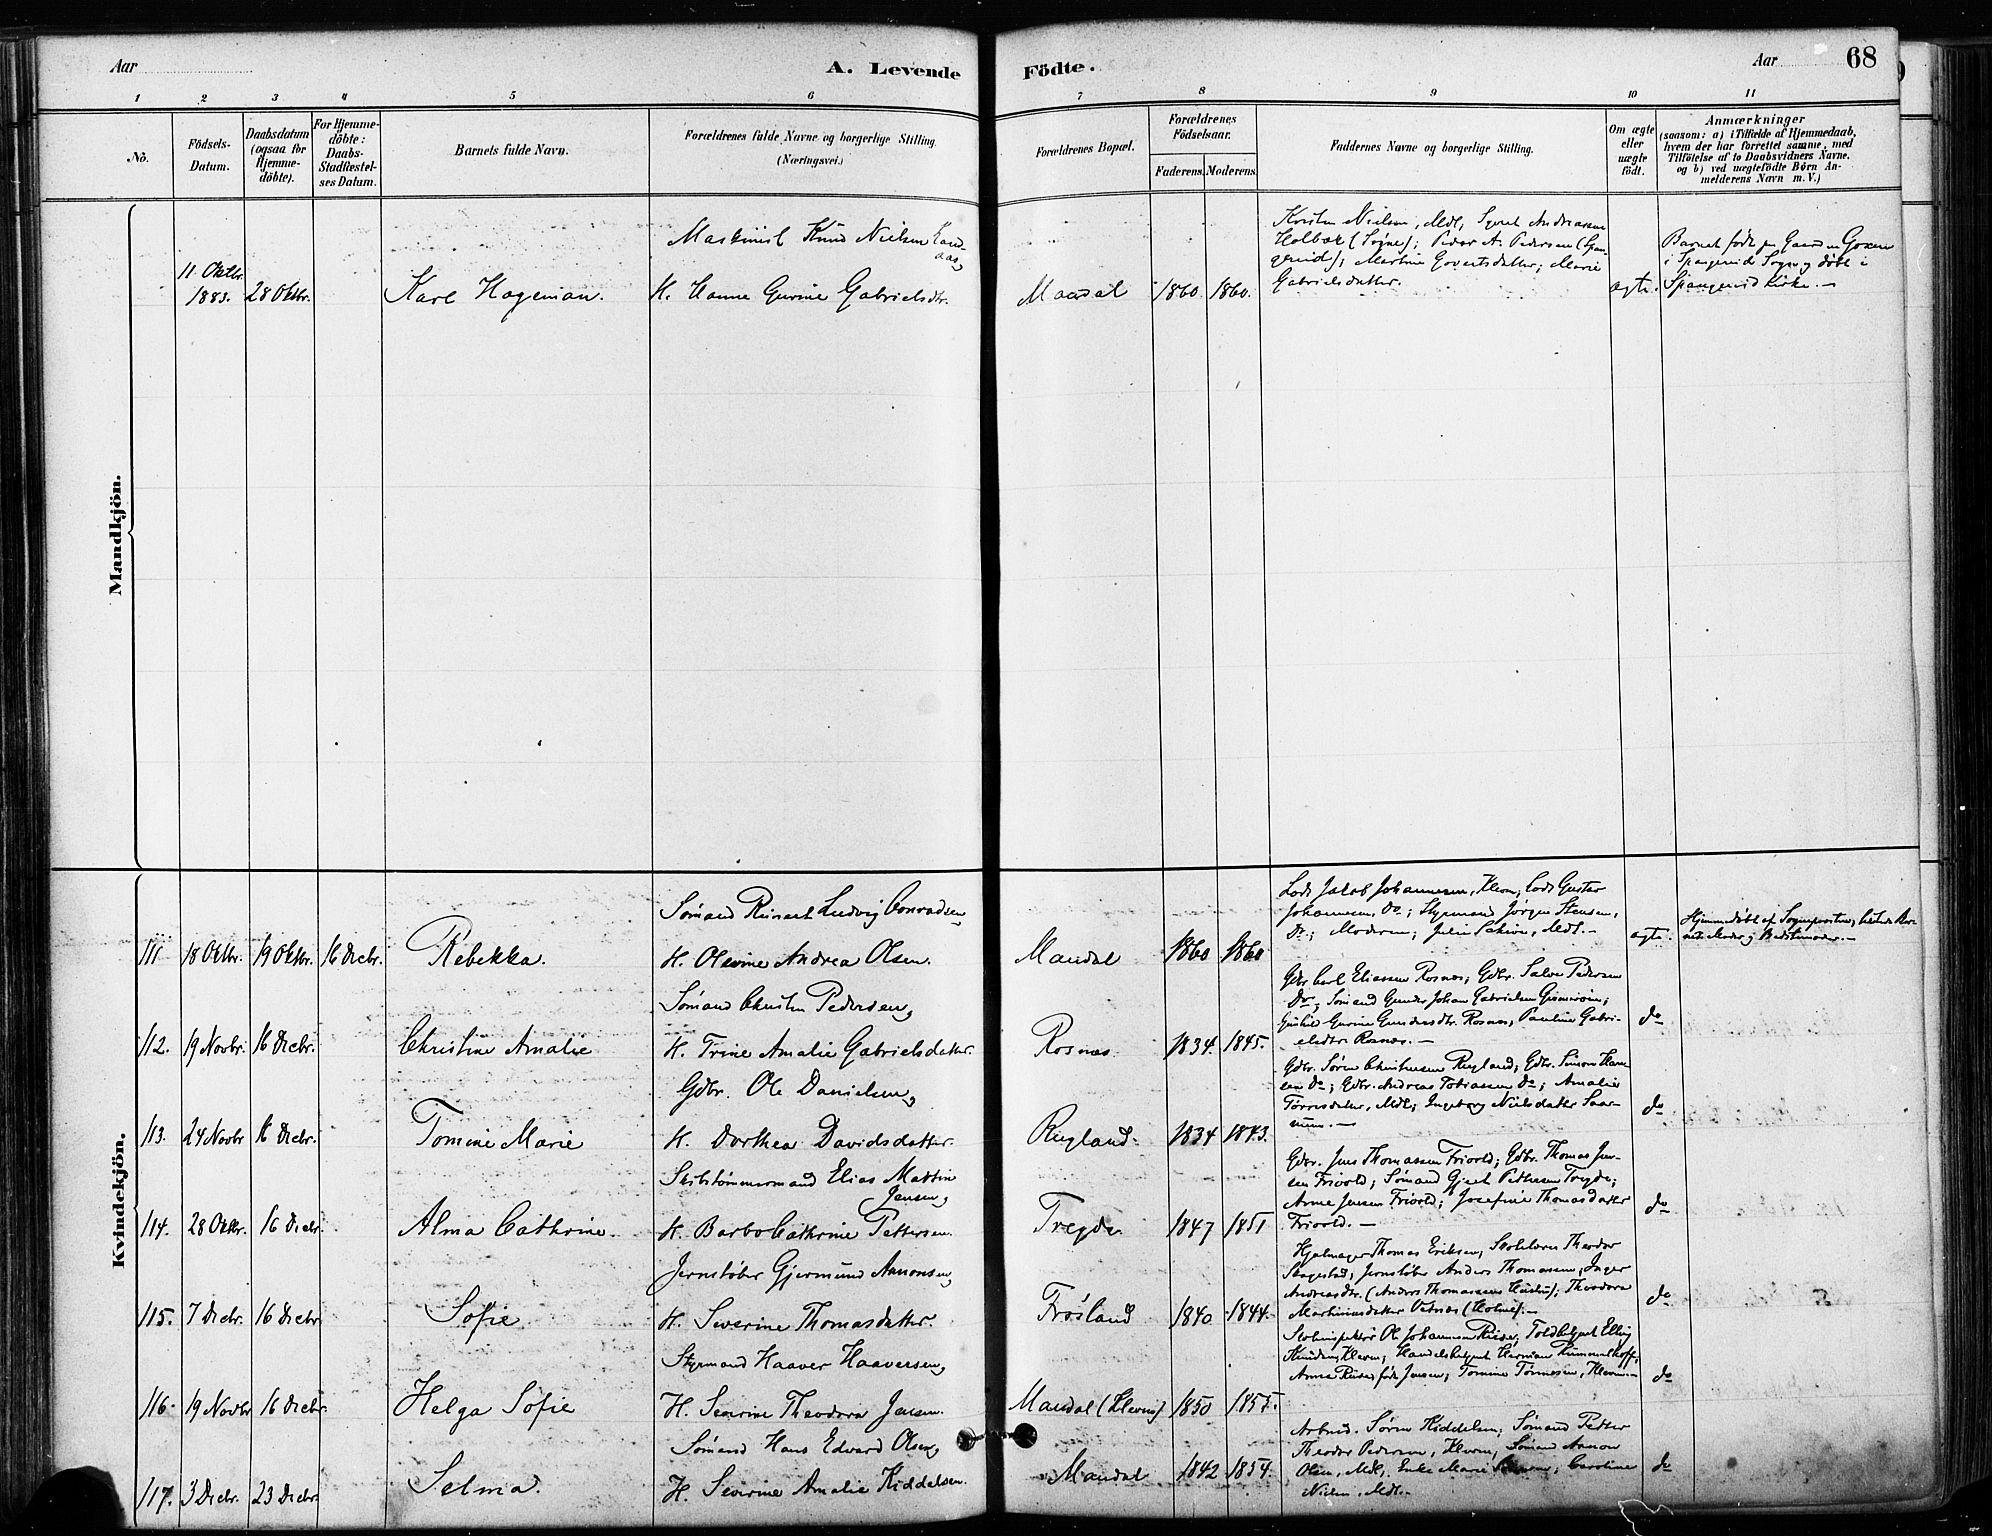 Aar
A. Levende
Födte.
Aar
68
1 2 3 4 5 6 7 8 9 10 11
No.
Födsels-Datum.
Daabsdatum (ogsaa for Hjemme-döbte).
For Hjemme-döbte: Daabs-Stadfæstel-ses Datum.
Barnets fulde Navn.
Forældrenes fulde Navne og borgerlige Stilling. (Næringsvei.)
Forældrenes Bopæl.
Forældrenes Födselsaar.
Faderens. Moderens.
Faddernes Navne og borgerlige Stilling.
Om ægte eller uægte födt.
Anmærkninger
(saasom: a) i Tilfælde af Hjemmedaab,
hvem der har forrettet samme, med
Tilföielse af to Daabsvidners Navne,
og b) ved uægtefödte Börn An-
melderens Navn m.V.)
Mandkjön.
11 Oktbr. 1883. 28 Oktbr.
Karl Hageman.
Maskinist Knud Nielsen
H. Hanne Gurine Gabrielsdtr.
Mandal 1860 1860.
Nielsen, Mdl, Andreassen
Holbæk (Søgne); Peder A. Pedersen (Span-
gereid); Martine Govertsdatter; Marie
Gabrielsdatter.
ægte.
Barnet født paa Gaarden
i Spangereids Sogn og døbt i
Spangereid Kirke.—
Kvindekjön.
111 18 Oktbr. 19 Oktbr. 16 Decbr.
Rebekka.
Sømand Reinert Ludvig Conradsen
H. Olevine Andrea Olsen.
Mandal 1860 1860
Lods Jacob Johannesen, Kleven; Lods Gustav
Johannesen, Do; Styrmand Jørgen Stensen,
Do; Moderen; Julie, Mdl.—
ægte.
Hjemmedøbt af Sognepresten;
112. 19 Novbr. 16 Decbr.
Christine Amalie
Sømand Christen Pedersen,
H. Trine Amalie Gabrielsdatter.
Rosnæs. 1834. 1845.
Gdbr. Carl Eliassen Rosnæs; Gdbr. Salve Pedersen
Do; Sømand Gunder Johan Gabrielsen
Gurine Gundersdtr. Rosnæs, Pauline Gabri-
elsdtr. Rosnæs.—
do
113. 24 Novbr 16 Decbr.
Tomine Marie
Gdbr. Ole Danielsen,
H. Dorthea Davidsdatter.
Rugland. 1834 1843.
Gdbr. Søren Christensen Rugland; Gdbr. Simon Han-
sen Do; Gdbr. Andreas Tobiassen Do; Amalie
Tørresdatter, Mdl; Ingeborg Nielsdatter
do
114. 28 Oktbr. 16 Decbr.
Alma Cathrine.
Skibstømmermand Elias Martin
Jensen,
H. Barbo Cathrine Pettersen.
Tregde 1847 1851
Gdbr. Jens Thomassen Frivold; Gdbr. Thomas Jen-
sen Frivold; Sømand Gjert Pettersen Tregde;
Anne Jensen Frivold; Josefine Thomasdatter
Frivold.—
do
115. 7 Decbr. 16 Decbr
Sofie
Jernstøber Gjermund Aanonsen,
H. Severine Thomasdatter.
Frøsland 1840 1844.
Hjulmager Thomas Eriksen; Skolelærer Theodor
Skagestad; Jernstøber Anders Thomassen; Inger
Andreasdtr. (Anders Thomassens Hustru); Theodora
Martinusdatter (Holme).—
do
116. 19 Novbr 16 Decbr.
Helga Sofie
Styrmand Haaver Haaversen,
H. Severine Theodora Jensen.
Mandal (Kleven) 1850 1855.
Ole Johannesen Riise; Toldbetjent Elling
Knudsen, Kleven; Handelsbetjent Herman Kummelhoff;
Anna Riise født Jensen; Tomine Tønnesen, Kleven.—
do
117. 3 Decbr. 23 Decbr.
Selma.
Sømand Hans Edvard Olsen,
H. Severine Amalie Kiddelsen.
Mandal 1842 1854.
Arbmd. Søren Kiddelsen; Sømand Petter
Theodor Pedersen, Kleven; Sømand Aanon
Olsen, Mdl; Enke Marie; Caroline
Nielsen, Mdl.—
do